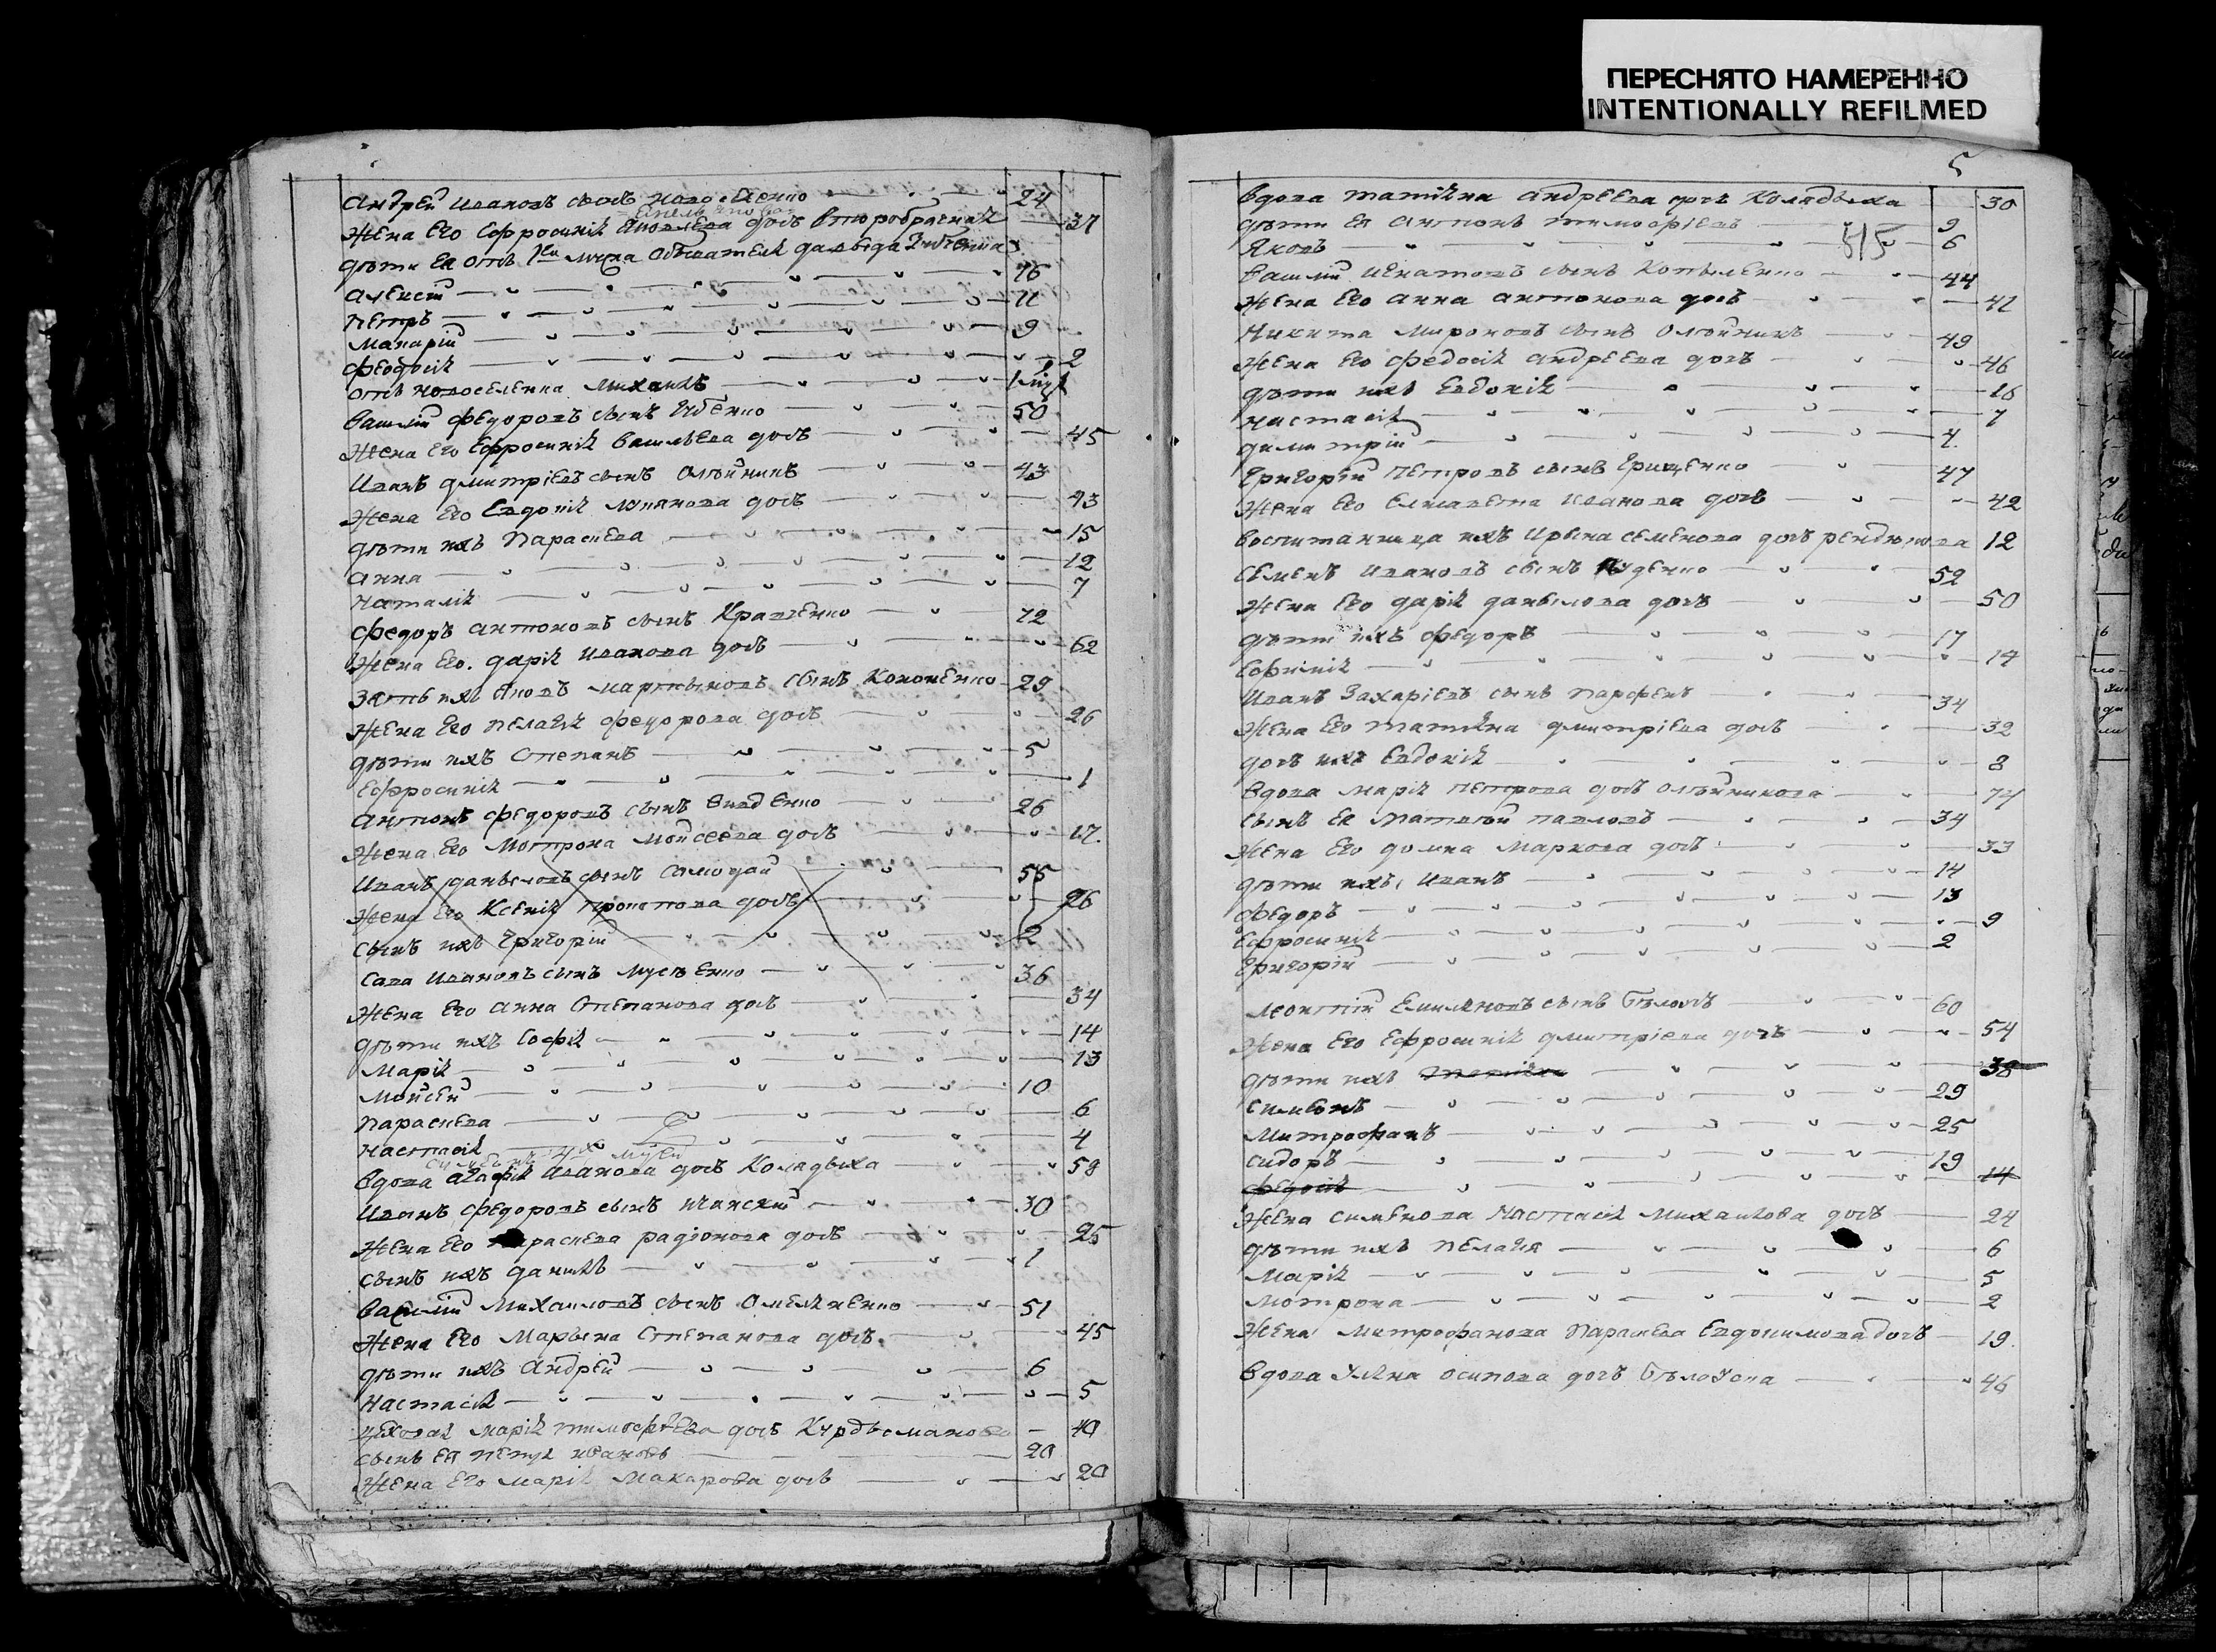 ПЕРЕСНЯТО НАМЕРЕННО
INTENTIONALLY REFILMED
Андрей Ивановъ сынъ 24
Жена его Ефросинія дочъ второбрачная 37
Дѣти ея отъ мужа обывателя Давыда
Алексей 16
Петръ 11
Макарій 9
Феодосія 2
отъ новоселенка Михаилъ
Василій Федоровъ сынъ 50
Жена его Ефросинія Васильева дочъ 45
Иванъ Дмитріевъ сынъ Олѣйникъ 43
Жена его Евдокія дочъ 43
Дѣти ихъ Параскева 15
Анна 12
Наталія 7
Федоръ Антоновъ сынъ Кравченко 72
Жена его Дарія Иванова дочъ 62
Зять ихъ Яковъ Мартыновъ сынъ Кононенко 29
Жена его Пелагія Федорова дочъ 26
Дѣти ихъ Степанъ 5
Ефросинія 1
Антонъ Федоровъ сынъ 26
Жена его Мотрона Мойсеева дочъ 17
Иванъ Даныловъ сынъ Самодай 55
Жена его Ксенія дочъ 26
Сынъ ихъ Григорій 2
Сава Ивановъ сынъ 36
Жена его Анна Степанова дочъ 34
Дѣти ихъ Софія 14
Марія 13
Мойсей 10
Параскева 6
Настасія 4
Вдова Агафія Иванова дочъ Колядыха 58
Иванъ Федоровъ сынъ 30
Жена его Параскева Радіонова дочъ 25
Сынъ ихъ Данилъ 1
Василій Михаиловъ сынъ Омелченко 51
Жена его Марына Степанова дочъ 45
Дѣти ихъ Андрей 6
Настасія 5
Марія Тимофѣева дочъ Курдыманова 40
Сынъ ея Петръ Ивановъ 20
Жена его Марія Макарова дочъ 20
5
Вдова Татіяна Андреева дочъ Колядыха 30
Дѣти ея Антонъ Тимофіевъ 9
Яковъ 515 6
Василій Игнатовъ сынъ Копыленко 44
Жена его Анна Антонова дочъ 42
Никита Мироновъ сынъ Олѣйникъ 49
Жена его Федосія Андреева дочъ 46
Дѣти ихъ Евдокія 16
Настасія 7
Димитрій 4
Григорій Петровъ сынъ Грищенко 47
Жена его Елисавета Иванова дочъ 42
Воспитанница ихъ Ирына Семенова дочъ 12
Семенъ Ивановъ сынъ 52
Жена его Дарія Данылова дочъ 50
Дѣти ихъ Федоръ 17
Ефимія 14
Иванъ Захаріевъ сынъ Парфенъ 34
Жена его Татіяна Дмитріева дочъ 32
Дочъ ихъ Евдокія 8
Вдова Марія Петрова дочъ Олѣйникова 74
Сынъ ея Матвѣй Павловъ 34
Жена его Домна Маркова дочъ 33
Дѣти ихъ Иванъ 14
Федоръ 13
Ефросинія 9
Григорій 2
Леонтій Емиляновъ сынъ 60
Жена его Ефросинія Дмитріева дочъ 54
Дѣти ихъ 38
Симеонъ 29
Митрофанъ 25
Сидоръ 19
Федосія 14
Жена Симеонова Настасія Михаилова дочъ 24
Дѣти ихъ Пелагія 6
Марія 5
Мотрона 2
Жена Митрофанова Параскева Евдокимова дочъ 19
Вдова Уляна Осипова дочъ 46